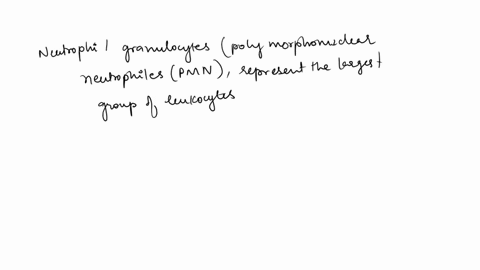 Neutrophil granulocytes (polymorphonuclear
neutrophiles (PMN), represent the largest
group of leukocytes